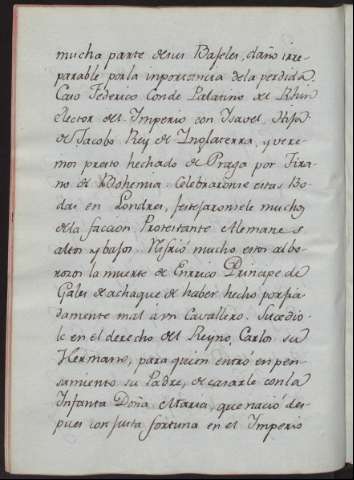 mucha parte de sus Baseles, daño irre-
parable por la importancia de la perdida.
Caso Federico Conde Palatino del Rhin
Elector del Imperio con Isavel, Hija
de Jacobo Rey de Inglaterra, y vere
mos presto hechado de Praga por Tira
no de Bohemia. Celebraronse estas Bo-
das en Londres, festejaronsele muchos
de la faccion Protestante Alemanes
altos y bajos. Resfrió mucho estos albo-
rozos la muerte de Enrrico Principe de
Gales de achaque de haber hecho porfia
damente mal á un Cavallero. Sucedio-
le en el derecho del Reyno, Carlos su
Hermano, para quien entró en pen-
samiento su Padre, de casarle con la
Infanta Doña Maria, que nació des
pues con justa fortuna en el Imperio